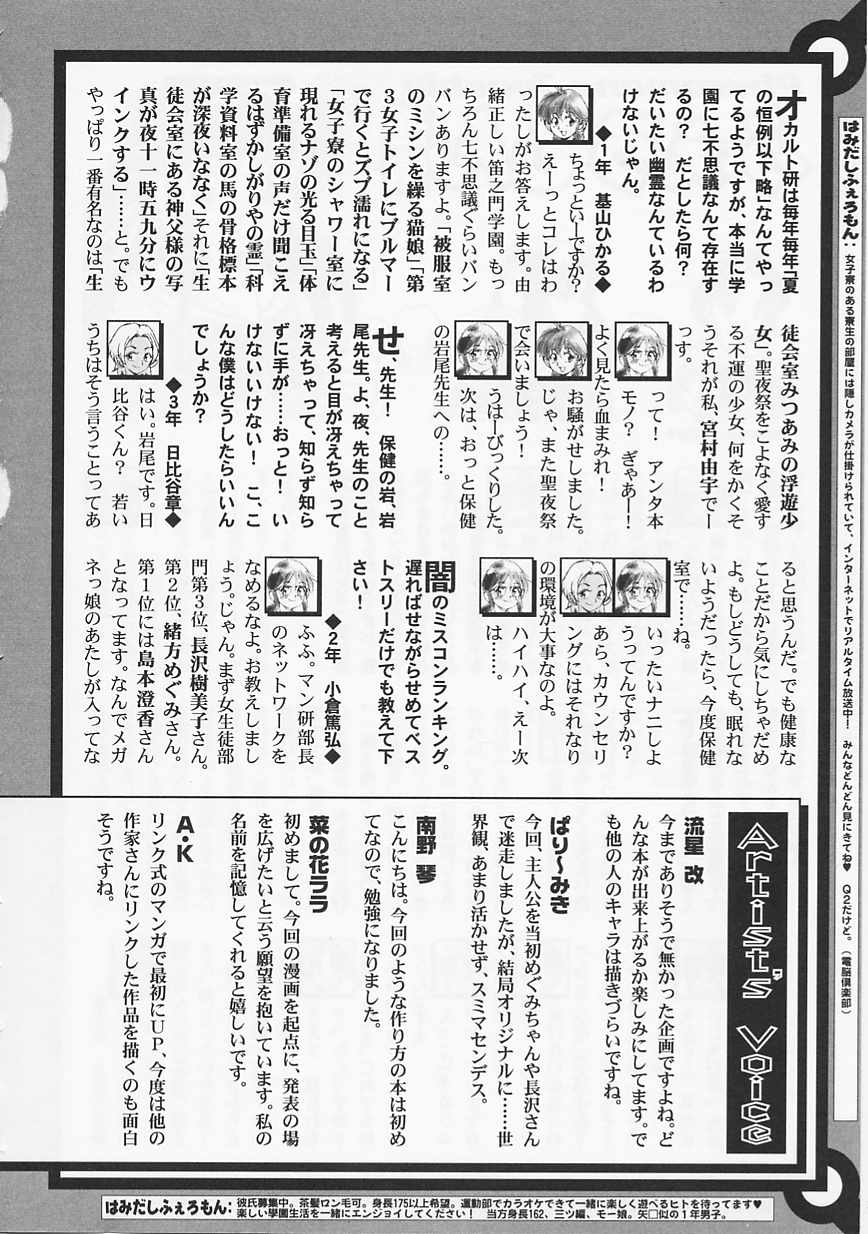 はみだしふぇろもん：女子寮のある寮生の部屋には隠しカメラが仕掛けられていて、インターネットでリアルタイム放送中！　みんなどんどん見にきてね♥　Q2だけど。（電脳倶楽部）
オカルト研は毎年毎年「夏
の恒例以下略」なんてやっ
てるようですが、本当に学
園に七不思議なんて存在す
るの？　だとしたら何？
だいたい幽霊なんているわ
けないじゃん。
◆1年　基山ひかる◆
ちょっといーですか？
えーっとコレはわ
ったしがお答えします。由
緒正しい笛之門学園。もっ
ちろん七不思議ぐらいバン
バンありますよ。「被服室
のミシンを繰る猫娘」「第
3女子トイレにブルマー
で行くとズブ濡れになる」
「女子寮のシャワー室に
現れるナゾの光る目玉」「体
育準備室の声だけ聞こえ
るはずかしがりやの霊」「科
学資料室の馬の骨格標本
が深夜いななく」それに「生
徒会室にある神父様の写
真が夜十一時五九分にウ
インクする」……と。でも
やっぱり一番有名なのは「生
徒会室みつあみの浮遊少
女」。聖夜祭をこよなく愛す
る不運の少女、何をかくそ
うそれが私、宮村由宇でー
っす。
って！　アンタ本
モノ？　ぎゃあー！
よく見たら血まみれ！
お騒がせしました。
じゃ、また聖夜祭
で会いましょう！
うはーびっくりした。
次は、おっと保健
の岩尾先生への……。
せ、先生！　保健の岩、岩
尾先生。よ、夜、先生のこと
考えると目が冴えちゃって
冴えちゃって、知らず知ら
ずに手が……おっと！　い
けないいけない！　こ、こ
んな僕はどうしたらいいん
でしょうか？
◆3年　日比谷章◆
はい。岩尾です。日
比谷くん？　若い
うちはそう言うことってあ
ると思うんだ。でも健康な
ことだから気にしちゃだめ
よ。もしどうしても、眠れな
いようだったら、今度保健
室で……ね。
いったいナニしよ
うってんですか？
あら、カウンセリ
ングにはそれなり
の環境が大事なのよ。
ハイハイ、えー次
は……。
闇のミスコンランキング。
遅ればせながらせめてベス
トスリーだけでも教えて下
さい！
◆2年　小倉篤弘◆
ふふ。マン研部長
のネットワークを
なめるなよ。お教えしまし
ょう。じゃん。まず女生徒部
門第3位、長沢樹美子さん。
第2位、緒方めぐみさん。
第1位には島本澄香さん
となってます。なんでメガ
ネっ娘のあたしが入ってな
Artist's Voice
流星 改
今までありそうで無かった企画ですよね。ど
んな本が出来上がるか楽しみにしてます。で
も他の人のキャラは描きづらいですね。
ぱり〜みき
今回、主人公を当初めぐみちゃんや長沢さん
で迷走しましたが、結局オリジナルに……世
界観、あまり活かせず、スミマセンデス。
南野 琴
こんにちは。今回のような作り方の本は初め
てなので、勉強になりました。
菜の花ララ
初めまして。今回の漫画を起点に、発表の場
を広げたいと云う願望を抱いています。私の
名前を記憶してくれると嬉しいです。
A・K
リンク式のマンガで最初にUP、今度は他の
作家さんにリンクした作品を描くのも面白
そうですね。
はみだしふぇろもん：彼氏募集中。茶髪ロン毛可。身長175以上希望。運動部でカラオケできて一緒に楽しく遊べるヒトを待ってます♥
楽しい学園生活を一緒にエンジョイしてください！　当方身長162、三ツ編、モー娘。矢口似の1年男子。